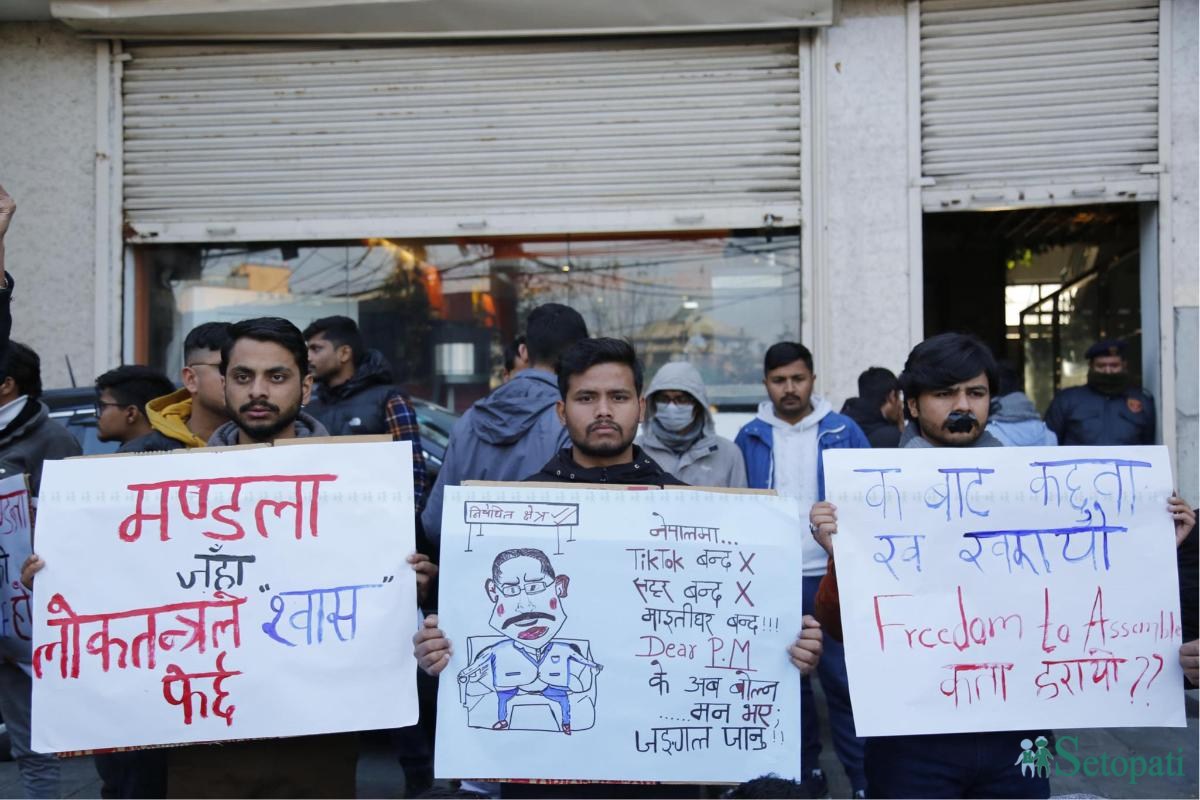 मण्डला
जँहा
लोकतन्त्रले "श्वास"
फेर्छ
निषेधित क्षेत्र
नेपालमा...
TikTok बन्द X
सहर बन्द X
माइतीघर बन्द!!!
Dear P.M
के अब बोल्न
......मन भए,
जङ्गल जानु!!
क बाट कछुवा
ख खरायो
Freedom to Assemble
कता हरायो??
Setopati